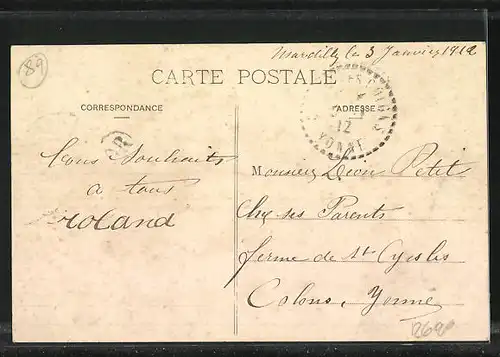 89
Mardilly le 3 Janvier 1912
CARTE POSTALE
CORRESPONDANCE
ADRESSE
12
YONNE
OR
Bons Souhaits
a tous
Roland
Monsieur Léon Petit
Chez ses Parents
ferme de St Cyr les
Colons, Yonne